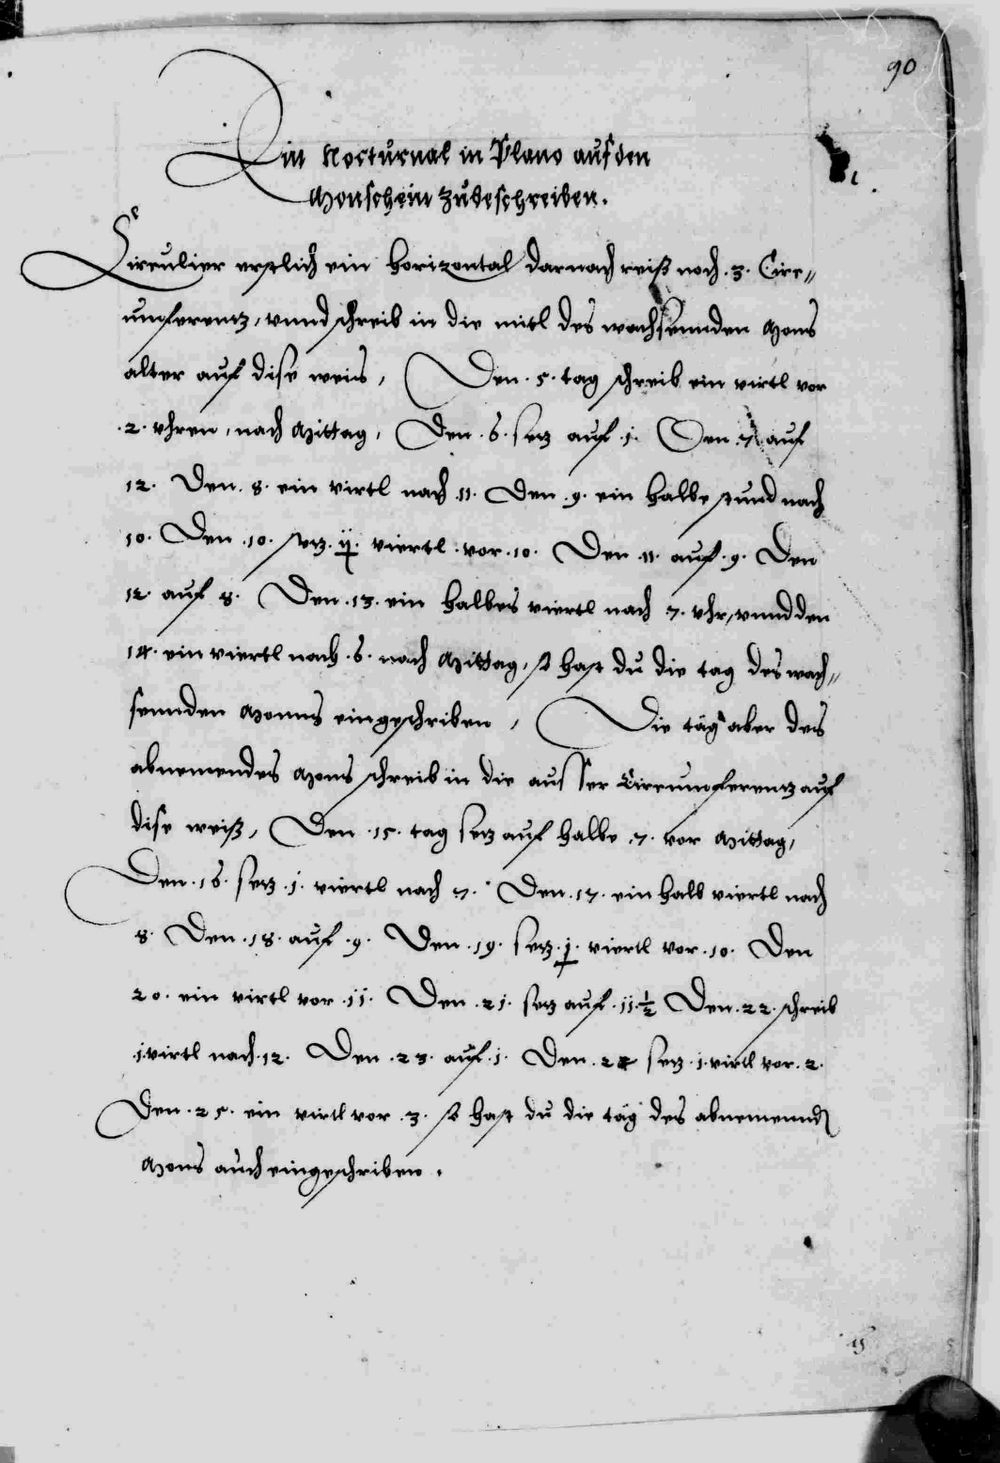 90
Ein Nocturnal in Plano auf den
Monschein zubeschreiben.
Circulier erstlich ein Horizontal darnach reiß noch .3. Circ„
umferentz, vnnd schreib in die mitl des wachsennden Mons
alter auf dise weis, Den .5. tag schreib ein virtl vor
.2. vhren, nach Mittag, Den .6. setz auf .1. Den .7. auf
12. Den .8. ein virtl nach .11. Den .9. ein halbe stund nach
10. Den .10. setz .ij. viertl .vor .10. Den .11. auf .9. Den
12. auf 8. Den .13. ein halbes viertl nach .7. vhr, vnnd den
14. ein viertl nach .6. nach Mittag, so hast du die tag des wach„
sennden Monns eingeschriben, Die täg aber des
abnemendes Mons schreib in die ausser Circumferentz auf
dise weiß, Den .15. tag setz auf halbe .7. vor Mittag,
Den .16. setz .1. viertl nach .7. Den .17. ein halb viertl nach
8. Den .18. auf .9. Den .19. setz .j. viertl vor .10. Den
20. ein virtl vor .11. Den .21. setz auf .11.½ Den .22. schreib
.1. virtl nach .12. Den .23. auf .1. Den .24 setz .1. virtl vor .2.
Den .25. ein virtl vor .3. so hast du die täg des abnemennd
Mons auch eingeschriben.